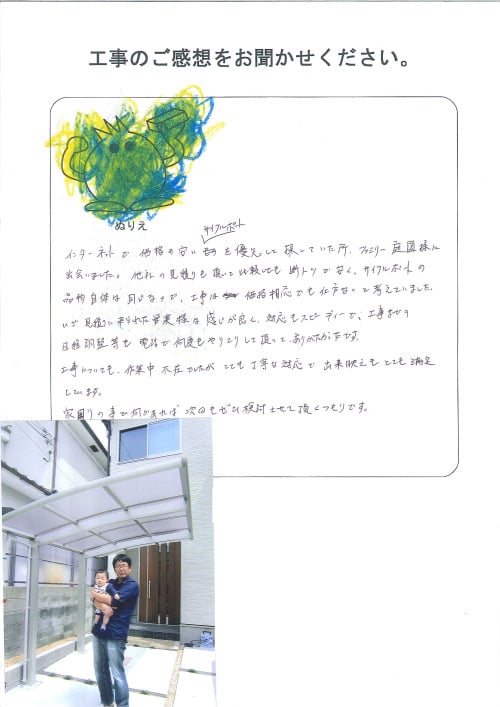 工事のご感想をお聞かせください。
ぬりえ
サイクルポート
インターネットで 価格の安い を優先して探していた所、ファミリー庭園様に
出会いました。他社の見積りも頂して比較しても断トツで安く、サイクルポートの
品物自体は同じなので、工事は 価格相応でも仕方ないと考えていました。
見積りに来られた営業様は感じが良く、対応もスピーディーで、工事までの
日程調整等も電話で何度もやりとりして頂いて、ありがたかったです。
工事についても、作業中 不在でしたが とても丁寧な対応で 出来映えもとても満足
しています。
家回りの事で何かあれば 次回もぜひ検討させて頂くつもりです。